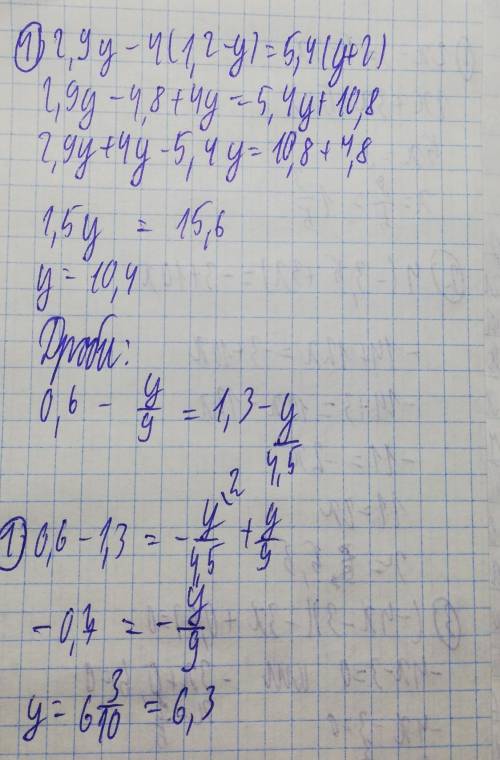 1) 2,9y - 4(1,2-y) = 5,4(y+2)
2,9y - 4,8 + 4y = 5,4y + 10,8
2,9y + 4y - 5,4y = 10,8 + 4,8
1,5y = 15,6
y = 10,4
Дроби:
0,6 - y/9 = 1,3 - y/4,5
1) 0,6 - 1,3 = - y\2/4,5 + y/9
-0,7 = - y/9
y = 6 3/10 = 6,3